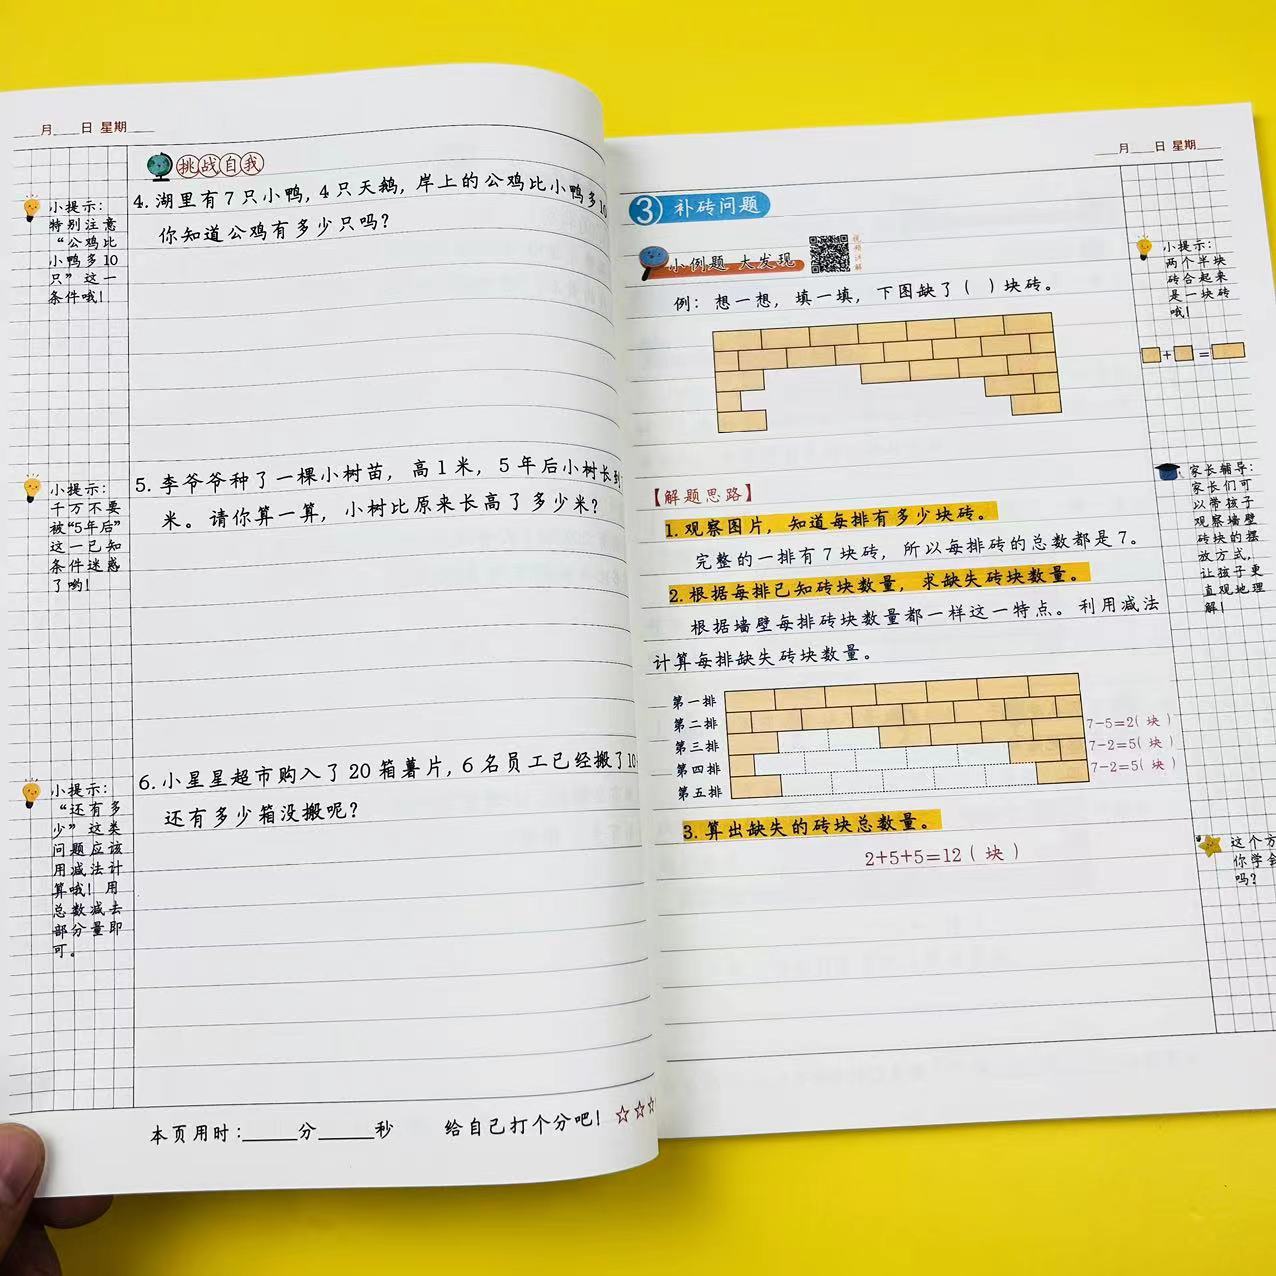 月 日 星期
挑战自我
小提示:
特别注意
“公鸡比
小鸭多10
只”这一
条件哦!
4.湖里有7只小鸭,4只天鹅,岸上的公鸡比小鸭多10
你知道公鸡有多少只吗?
小提示:
千万不要
被“5年后”
这一已知
条件迷惑
了哟!
5.李爷爷种了一棵小树苗,高1米,5年后小树长到
米。请你算一算,小树比原来长高了多少米?
小提示:
“还有多
少”这类
问题应该
用减法计
算哦!用
总数减去
部分量即
可。
6.小星星超市购入了20箱薯片,6名员工已经搬了10
还有多少箱没搬呢?
本页用时:_____分_____秒 给自己打个分吧!☆☆☆
月 日 星期
3 补砖问题
小例题 大发现
视频讲解
例:想一想,填一填,下图缺了( )块砖。
小提示:
两个半块
砖合起来
是一块砖
哦!
+ =
【解题思路】
1.观察图片,知道每排有多少块砖。
完整的一排有7块砖,所以每排砖的总数都是7。
2.根据每排已知砖块数量,求缺失砖块数量。
根据墙壁每排砖块数量都一样这一特点。利用减法
计算每排缺失砖块数量。
家长辅导:
家长们可
以带孩子
观察墙壁
砖块的摆
放方式,
让孩子更
直观地理
解!
第一排
第二排
第三排
第四排
第五排
7-5=2(块)
7-2=5(块)
7-2=5(块)
3.算出缺失的砖块总数量。
2+5+5=12(块)
这个方
你学会
吗?